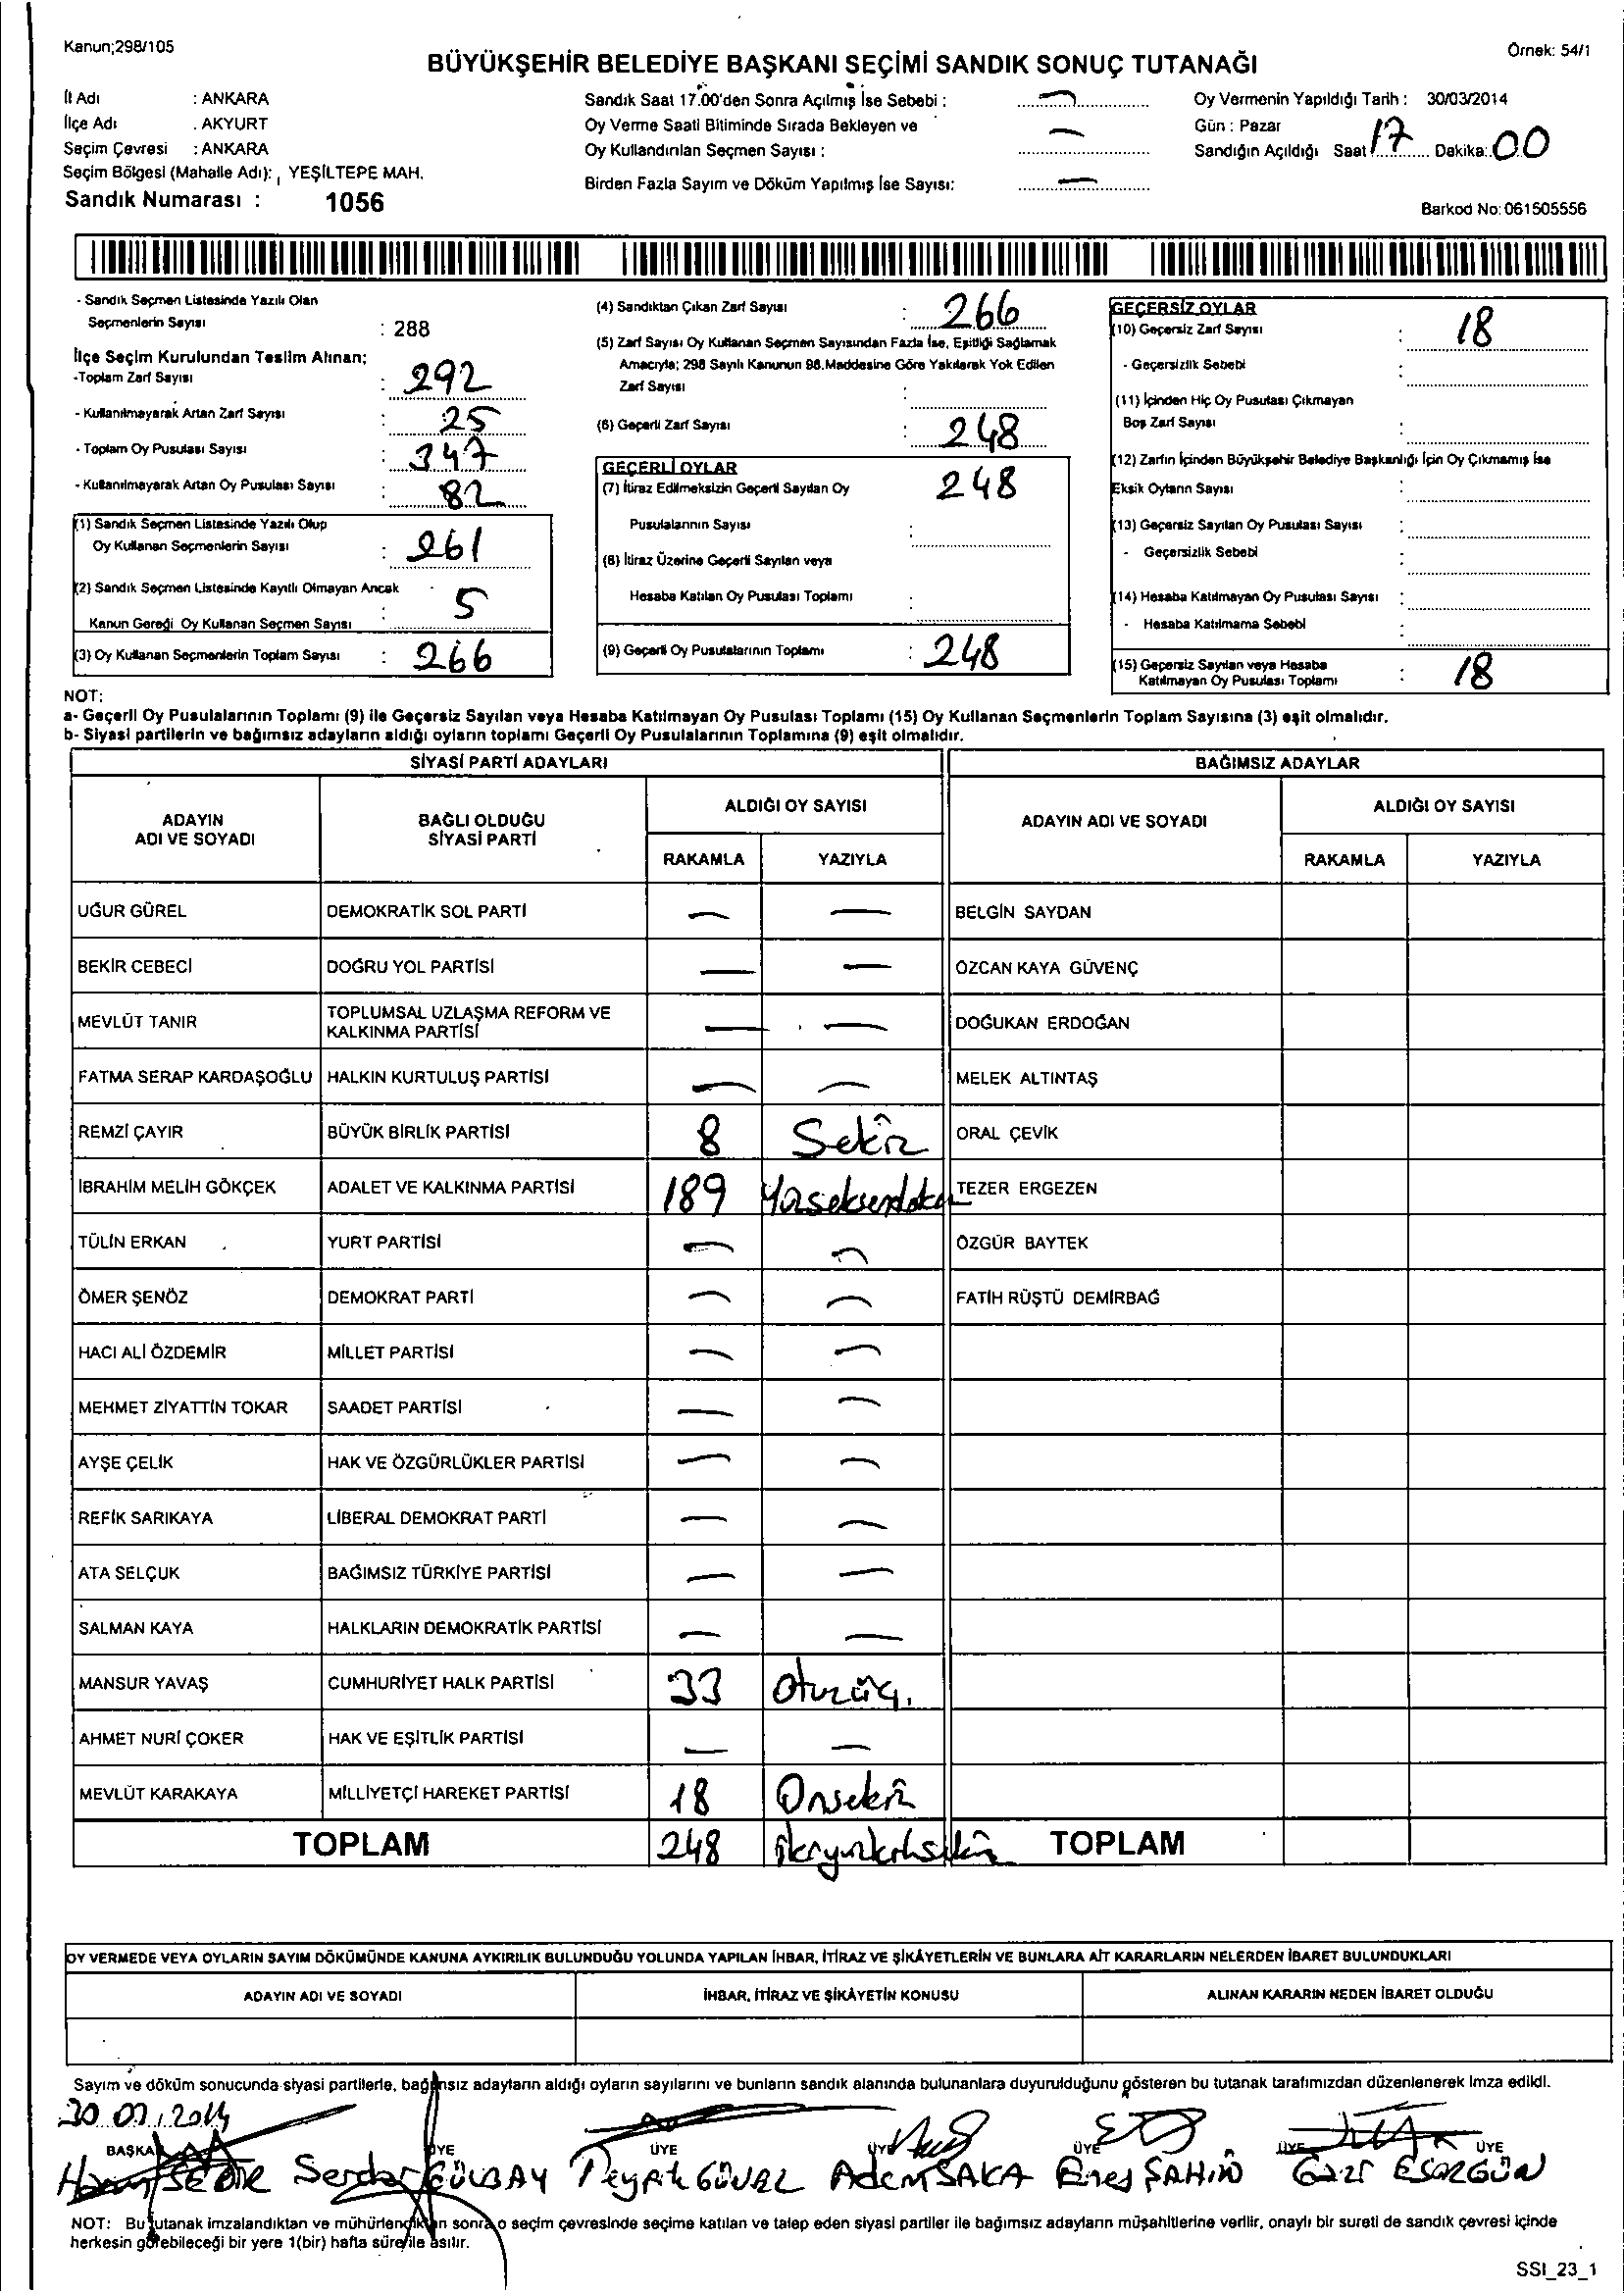 Kanun;298/105
Örnek: 54/1
BÜYÜKŞEHİR BELEDİYE BAŞKANI SEÇİMİ SANDIK SONUÇ TUTANAĞI
İl Adı : ANKARA
İlçe Adı : AKYURT
Seçim Çevresi : ANKARA
Seçim Bölgesi (Mahalle Adı): YEŞİLTEPE MAH.
Sandık Numarası : 1056
Sandık Saat 17.00'den Sonra Açılmış İse Sebebi : —
Oy Verme Saati Bitiminde Sırada Bekleyen ve
Oy Kullandırılan Seçmen Sayısı : —
Birden Fazla Sayım ve Döküm Yapılmış İse Sayısı: —
Oy Vermenin Yapıldığı Tarih : 30/03/2014
Gün : Pazar
Sandığın Açıldığı Saat 17 Dakika: 00
Barkod No: 061505556
- Sandık Seçmen Listesinde Yazılı Olan
Seçmenlerin Sayısı : 288
İlçe Seçim Kurulundan Teslim Alınan;
-Toplam Zarf Sayısı : 292
- Kullanılmayarak Artan Zarf Sayısı : 25
- Toplam Oy Pusulası Sayısı : 347
- Kullanılmayarak Artan Oy Pusulası Sayısı : 82
(1) Sandık Seçmen Listesinde Yazılı Olup
Oy Kullanan Seçmenlerin Sayısı : 261
(2) Sandık Seçmen Listesinde Kayıtlı Olmayan Ancak
Kanun Gereği Oy Kullanan Seçmen Sayısı : 5
(3) Oy Kullanan Seçmenlerin Toplam Sayısı : 266
(4) Sandıktan Çıkan Zarf Sayısı : 266
(5) Zarf Sayısı Oy Kullanan Seçmen Sayısından Fazla İse, Eşitliği Sağlamak
Amacıyla; 298 Sayılı Kanunun 98.Maddesine Göre Yakılarak Yok Edilen
Zarf Sayısı :
(6) Geçerli Zarf Sayısı : 248
GEÇERLİ OYLAR
(7) İtiraz Edilmeksizin Geçerli Sayılan Oy 248
Pusulalarının Sayısı :
(8) İtiraz Üzerine Geçerli Sayılan veya
Hesaba Katılan Oy Pusulası Toplamı :
(9) Geçerli Oy Pusulalarının Toplamı : 248
GEÇERSİZ OYLAR
(10) Geçersiz Zarf Sayısı : 18
- Geçersizlik Sebebi :
(11) İçinden Hiç Oy Pusulası Çıkmayan
Boş Zarf Sayısı :
(12) Zarfın İçinden Büyükşehir Belediye Başkanlığı İçin Oy Çıkmamış İse
Eksik Oyların Sayısı :
(13) Geçersiz Sayılan Oy Pusulası Sayısı :
- Geçersizlik Sebebi :
(14) Hesaba Katılmayan Oy Pusulası Sayısı :
- Hesaba Katılmama Sebebi :
(15) Geçersiz Sayılan veya Hesaba
Katılmayan Oy Pusulası Toplamı : 18
NOT:
a- Geçerli Oy Pusulalarının Toplamı (9) ile Geçersiz Sayılan veya Hesaba Katılmayan Oy Pusulası Toplamı (15) Oy Kullanan Seçmenlerin Toplam Sayısına (3) eşit olmalıdır.
b- Siyasi partilerin ve bağımsız adayların aldığı oyların toplamı Geçerli Oy Pusulalarının Toplamına (9) eşit olmalıdır.
SİYASİ PARTİ ADAYLARI BAĞIMSIZ ADAYLAR
ADAYIN ADI VE SOYADI BAĞLI OLDUĞU SİYASİ PARTİ ALDIĞI OY SAYISI RAKAMLA YAZIYLA ADAYIN ADI VE SOYADI ALDIĞI OY SAYISI RAKAMLA YAZIYLA
UĞUR GÜREL DEMOKRATİK SOL PARTİ — — BELGİN SAYDAN
BEKİR CEBECİ DOĞRU YOL PARTİSİ — — ÖZCAN KAYA GÜVENÇ
MEVLÜT TANIR TOPLUMSAL UZLAŞMA REFORM VE KALKINMA PARTİSİ — — DOĞUKAN ERDOĞAN
FATMA SERAP KARDAŞOĞLU HALKIN KURTULUŞ PARTİSİ — — MELEK ALTINTAŞ
REMZİ ÇAYIR BÜYÜK BİRLİK PARTİSİ 8 Sekiz ORAL ÇEVİK
İBRAHİM MELİH GÖKÇEK ADALET VE KALKINMA PARTİSİ 189 Yüzseksendokuz TEZER ERGEZEN
TÜLİN ERKAN YURT PARTİSİ — — ÖZGÜR BAYTEK
ÖMER ŞENÖZ DEMOKRAT PARTİ — — FATİH RÜŞTÜ DEMİRBAĞ
HACI ALİ ÖZDEMİR MİLLET PARTİSİ — —
MEHMET ZİYATTİN TOKAR SAADET PARTİSİ — —
AYŞE ÇELİK HAK VE ÖZGÜRLÜKLER PARTİSİ — —
REFİK SARIKAYA LİBERAL DEMOKRAT PARTİ — —
ATA SELÇUK BAĞIMSIZ TÜRKİYE PARTİSİ — —
SALMAN KAYA HALKLARIN DEMOKRATİK PARTİSİ — —
MANSUR YAVAŞ CUMHURİYET HALK PARTİSİ 33 Otuzüç.
AHMET NURİ ÇOKER HAK VE EŞİTLİK PARTİSİ — —
MEVLÜT KARAKAYA MİLLİYETÇİ HAREKET PARTİSİ 18 Onsekiz
TOPLAM 248 ikiyüzkırksekiz TOPLAM
OY VERMEDE VEYA OYLARIN SAYIM DÖKÜMÜNDE KANUNA AYKIRILIK BULUNDUĞU YOLUNDA YAPILAN İHBAR, İTİRAZ VE ŞİKÂYETLERİN VE BUNLARA AİT KARARLARIN NELERDEN İBARET BULUNDUKLARI
ADAYIN ADI VE SOYADI İHBAR, İTİRAZ VE ŞİKÂYETİN KONUSU ALINAN KARARIN NEDEN İBARET OLDUĞU
Sayım ve döküm sonucunda siyasi partilerle, bağımsız adayların aldığı oyların sayılarını ve bunların sandık alanında bulunanlara duyurulduğunu gösteren bu tutanak tarafımızdan düzenlenerek imza edildi.
30.03.2014
BAŞKAN ÜYE ÜYE ÜYE ÜYE ÜYE ÜYE
Serdar GÜLBAY GÜVEL Adem SAKA Enes ŞAHİN
NOT: Bu tutanak imzalandıktan ve mühürlendikten sonra o seçim çevresinde seçime katılan ve talep eden siyasi partiler ile bağımsız adayların müşahitlerine verilir, onaylı bir sureti de sandık çevresi içinde
herkesin görebileceği bir yere 1(bir) hafta süre ile asılır.
SSI_23_1